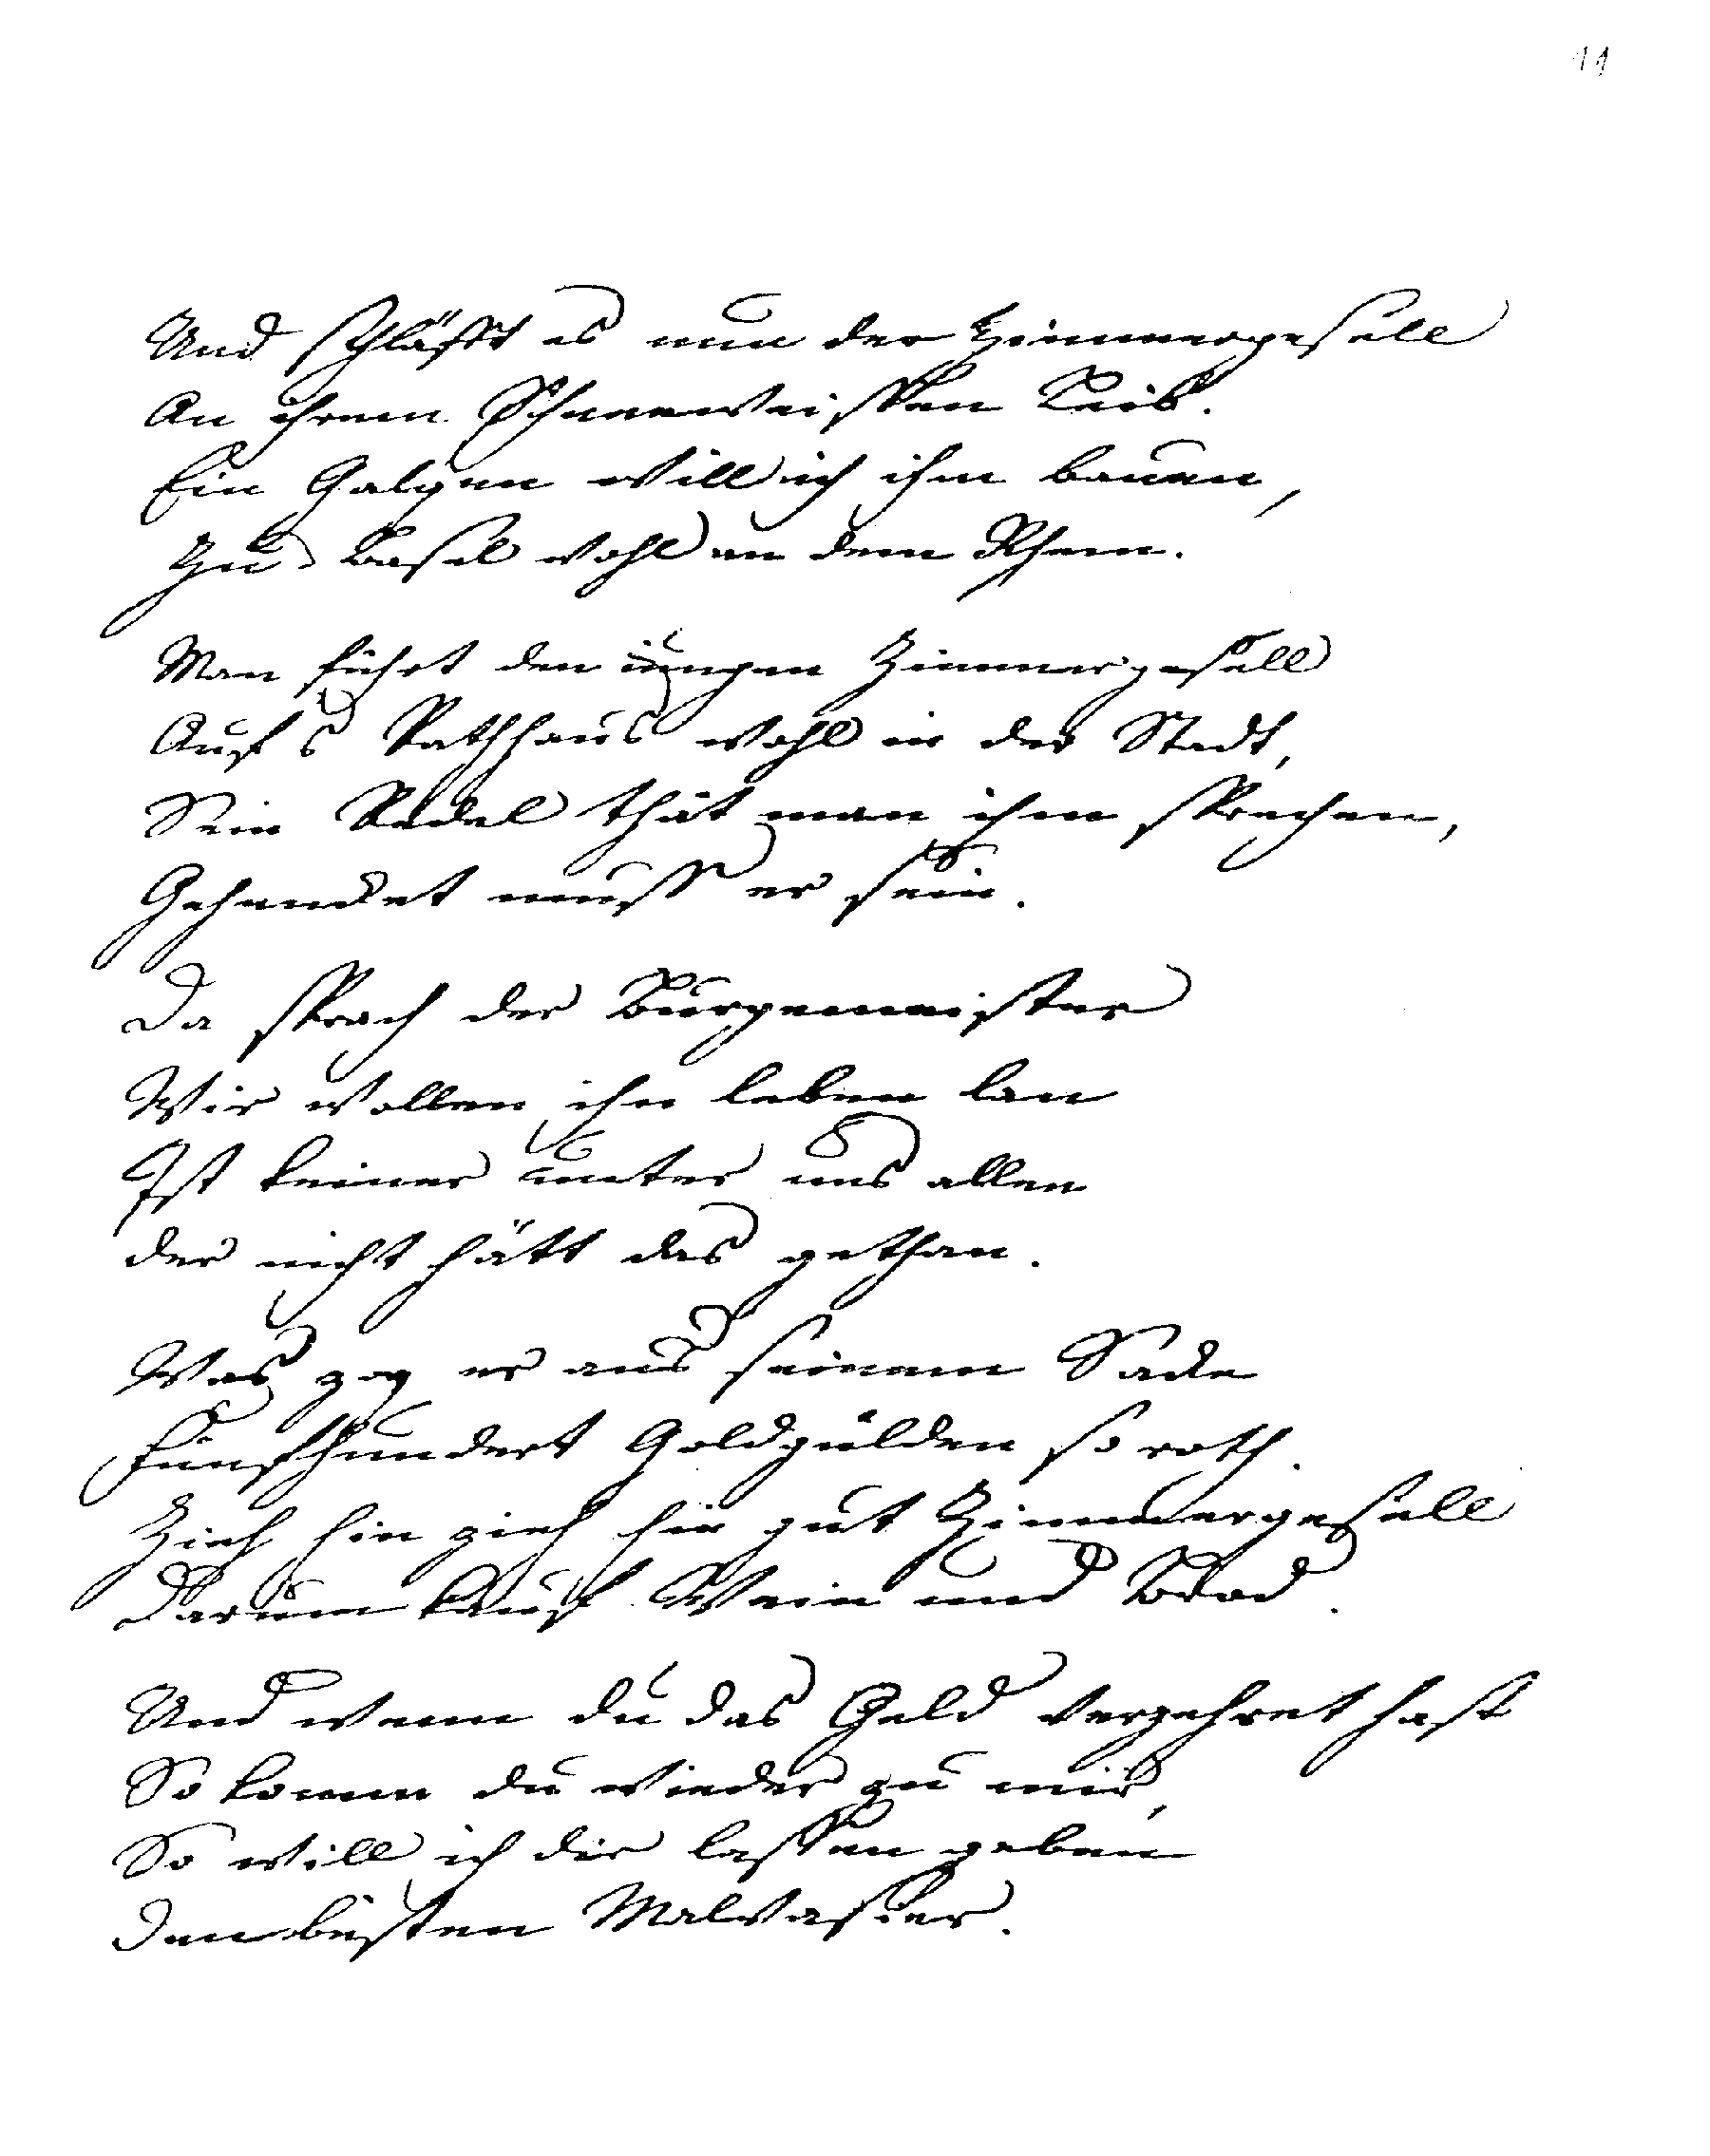 11
Und schläfft es nun der Zimmergesell
An ihrem Schneeweissen Leib.
Ein Galgen will ich ihm bauen,
Zu Basel wohl an dem Rhein.
Man führt den iungen Zimmergesell
Auf's Rathhaus wohl in der Stadt,
Sein Urdel thät man ihm sprechen,
Gehencket muss er sein.
Da sprach der Burgemeister
Wir wollen ihn leben lan
Ist keiner unter uns allen
der nicht hätt das gethan.
Was zog er aus seinem Sacke
Fünfhundert Goldgülden so roth.
Zieh hin zieh hin gut Zimmergesell
Darum kauf Wein und Brod.
Und wenn du das Geld verzehret hast
So komm du wieder zu mir,
So will ich dir lassen geben
Den besten Malvasier.